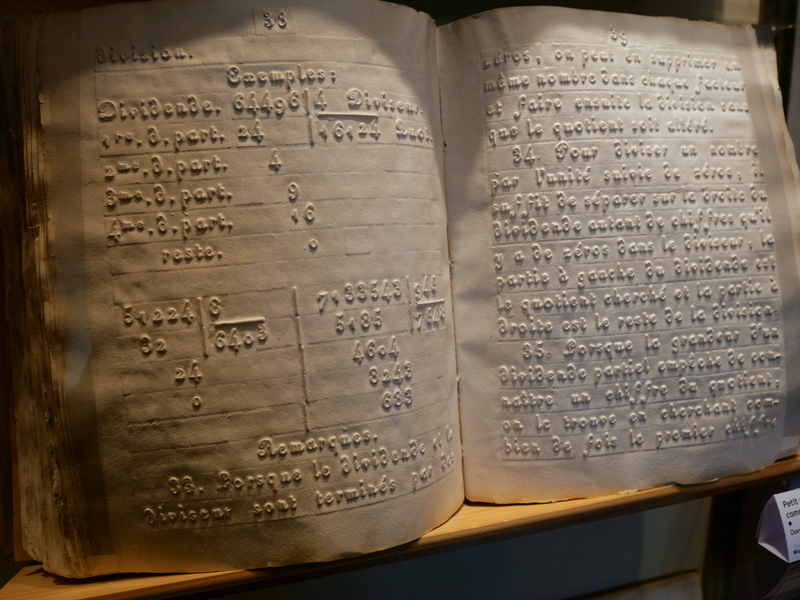 38
division.
Exemples:
Dividende. 64496 | 4 Diviseur.
1re, d, part. 24 | 16124 Quot.
2me, d, part. 4
3me, d, part. 9
4me, d, part. 16
reste. 0
51224 | 8
32 | 6403
24
0
7133543 | 946
5135 | 754
4604
3243
633
Remarques.
33. Lorsque le dividende et le
diviseur sont terminés par des
29
zéros, on peut en supprimer un
même nombre dans chaque facteur
et faire ensuite la division sans
que le quotient soit altéré.
34. Pour diviser un nombre
par l'unité suivie de zéros, il
suffit de séparer sur la droite du
dividende autant de chiffres qu'il
y a de zéros dans le diviseur, la
partie à gauche du dividende est
le quotient cherché et la partie à
droite est le reste de la division.
35. Lorsque la grandeur d'un
dividende partiel empêche de con-
naître un chiffre du quotient,
on le trouve en cherchant com-
bien de fois le premier chiffre
Petit